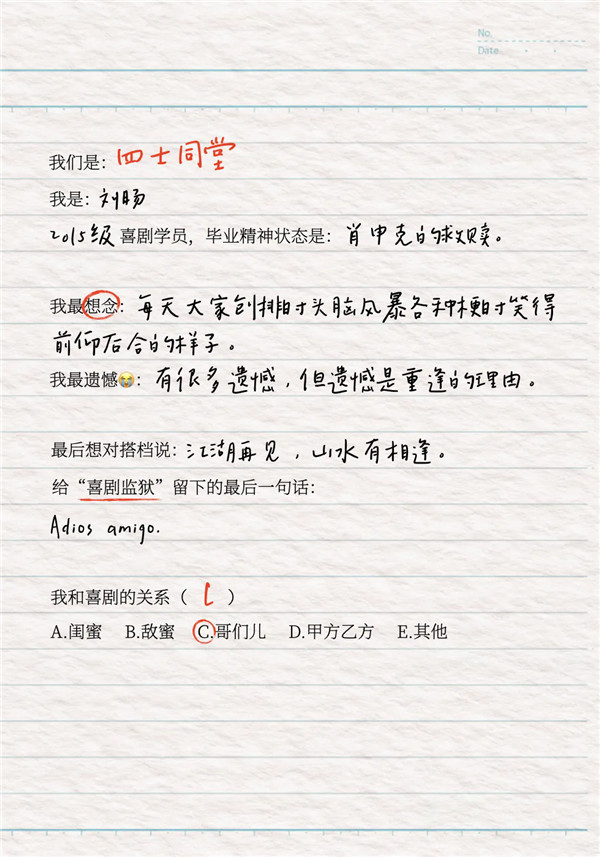 No.
Date
我们是：四士同堂
我是：刘旸
2015级喜剧学员，毕业精神状态是：肖申克的救赎。
我最想念：每天大家创排时头脑风暴各种梗时笑得
前仰后合的样子。
我最遗憾😭：有很多遗憾，但遗憾是重逢的理由。
最后想对搭档说：江湖再见，山水有相逢。
给“喜剧监狱”留下的最后一句话：
Adios amigo.
我和喜剧的关系（C）
A.闺蜜 B.敌蜜 C.哥们儿 D.甲方乙方 E.其他